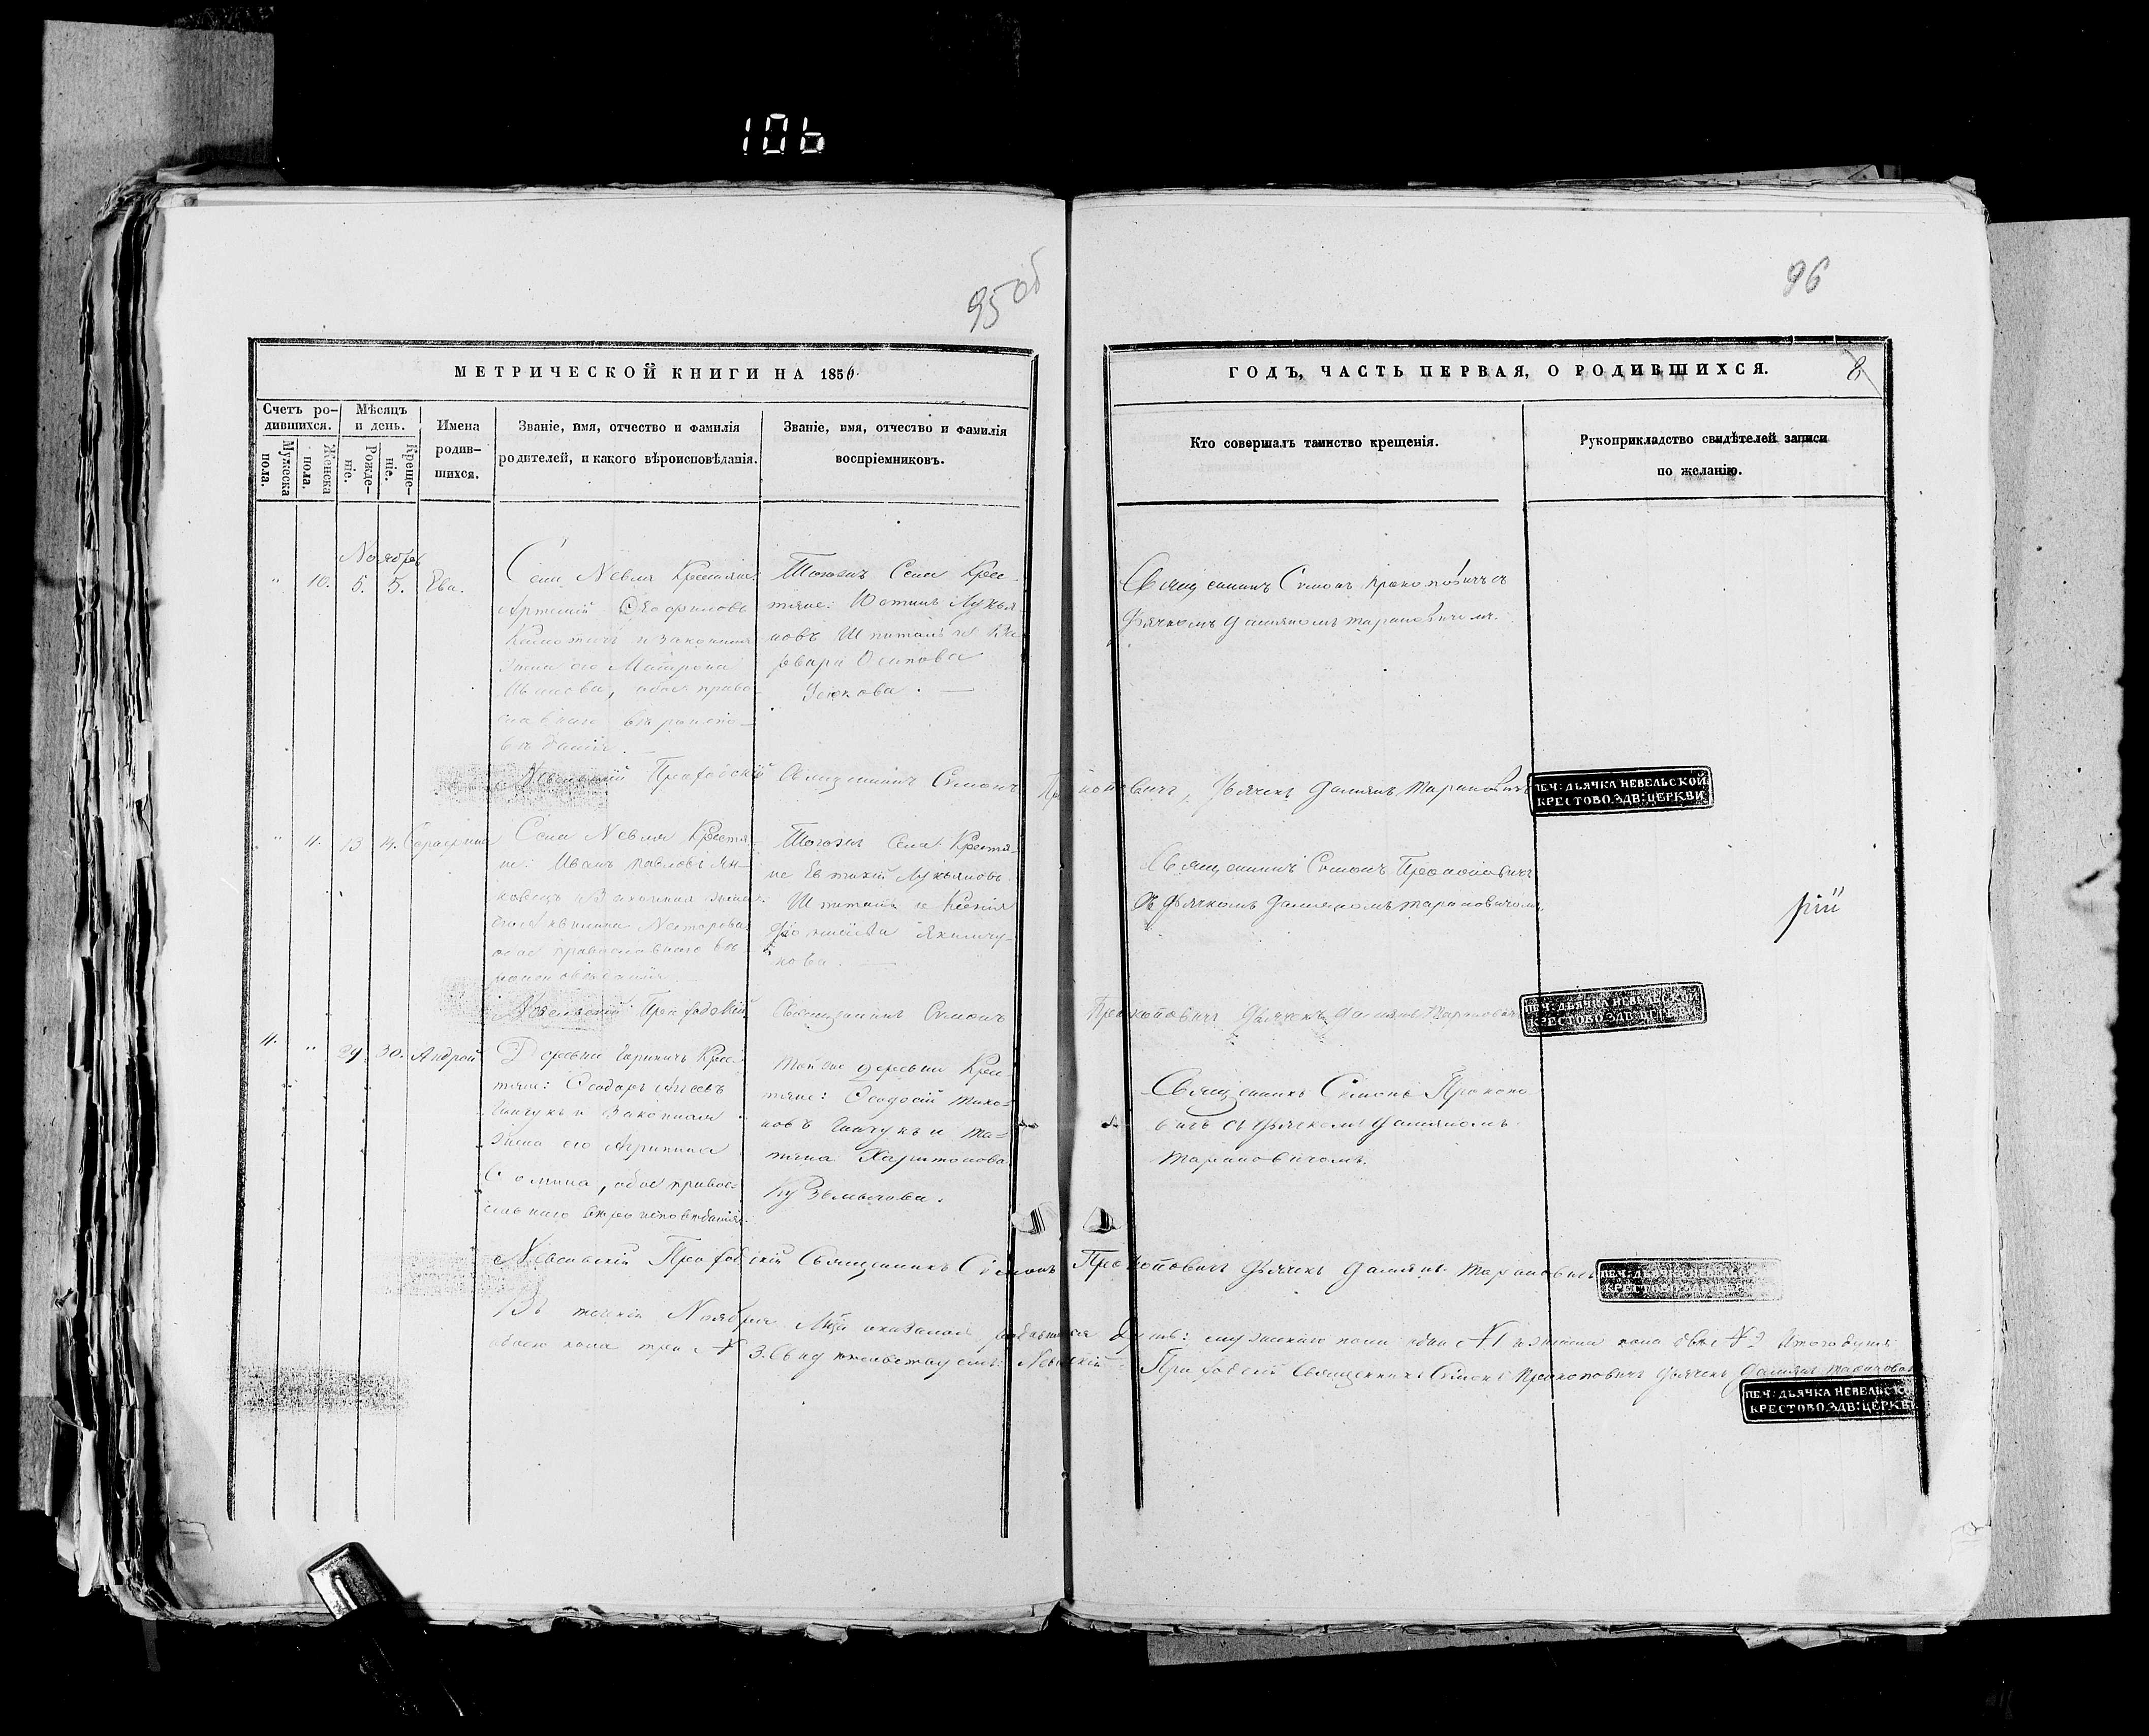 106
95 об
96
МЕТРИЧЕСКОЙ КНИГИ НА 1856
ГОДЪ, ЧАСТЬ ПЕРВАЯ, О РОДИВШИХСЯ.
8
Счетъ ро-
дившихся.
Мужеска
пола.
Женска
пола.
Мѣсяцъ
и день.
Рожде-
ніе.
Креще-
ніе.
Имена
родив-
шихся.
Званіе, имя, отчество и фамилія
родителей, и какого вѣроисповѣданія.
Званіе, имя, отчество и фамилія
воспріемниковъ.
Кто совершалъ таинство крещенія.
Рукоприкладство свидѣтелей записи
по желанію.
Ноябрь
" 10. 5. 5. Ева.
Села Невля Крестьяне:
Артемій Ѳеофиловъ
и законная
жена его Матрона
Иванова, обое право-
славнаго вѣроиспо-
вѣданія.
Тогожъ Села Крес-
тяне: Лукья-
новъ Шпитанъ и Ва-
рвара Осипова
Священникъ Симонъ Прокоповичъ съ
Дьячкомъ Даміяномъ Тарановичемъ.
Невельскій Приходскій Священникъ Симонъ Прокоповичъ, Дьячекъ Даміянъ Тарановичъ
ПЕЧ: ДЬЯЧКА НЕВЕЛЬСКОЙ
КРЕСТОВОЗДВ: ЦЕРКВИ
" 11. 13 14. Серафима
Села Невля Крестья-
не: Иванъ Павловъ Ян-
ковецъ и Законная жена
Несторова
обое православнаго вѣ-
роисповѣданія
Тогожъ Села Крестья-
не Евтихій Лукьяновъ
Шпитанъ и Ксенія
нова.
Священникъ Симонъ Прокоповичъ
съ Дьячкомъ Даміяномъ Тарановичомъ
Невельскій Приходскій Священникъ Симонъ Прокоповичъ Дьячекъ Даміянъ Тарановичъ
ПЕЧ: ДЬЯЧКА НЕВЕЛЬСКОЙ
КРЕСТОВОЗДВ: ЦЕРКВИ
4. " 29. 30. Андрей
Деревни Крес-
тяне: Ѳеодоръ
и Законная
жена его Агрипина
Сомина, обое правос-
лавнаго вѣроисповѣданія.
Тойже деревни Крес-
тяне: Ѳеодосій Тихо-
новъ и Та-
тяна Харитонова
Священникъ Симонъ Прокопо-
вичъ съ Дьячкомъ Даміяномъ
Тарановичомъ.
Невельскій Приходскій Священникъ Симонъ Прокоповичъ Дьячекъ Даміянъ Тарановичъ
ПЕЧ: ДЬЯЧКА НЕВЕЛЬСКОЙ
КРЕСТОВОЗДВ: ЦЕРКВИ
Въ теченіи Ноября М-ца оказалось родившихся душъ: мужеска пола одна №1 и женска пола двѣ №2 Итого душъ
обоего пола три № 3. Свидѣтельствуемъ: Невельскій Приходскій Священникъ Симонъ Прокоповичъ Дьячекъ Даміянъ Тарановичъ
ПЕЧ: ДЬЯЧКА НЕВЕЛЬСКОЙ
КРЕСТОВОЗДВ: ЦЕРКВИ